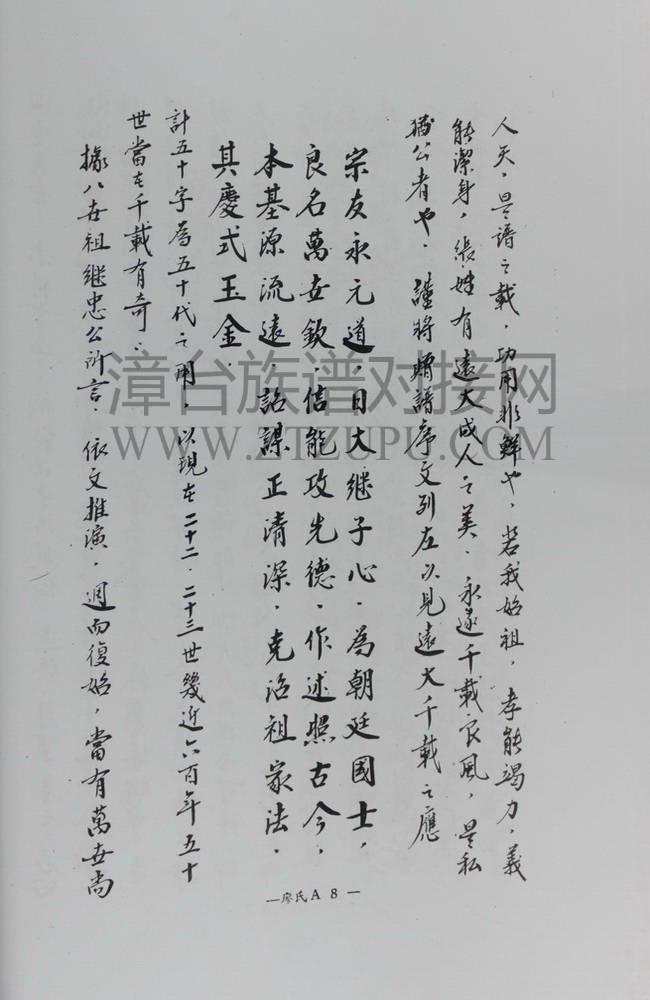 人天，是譜之載，功用非鮮也，若我始祖，孝能竭力，義
能潔身，張姓有遠大成人之美．永遂千載良風，是私
猶公者也．謹將贈譜序文列左以見遠大千載之應
宗友永元道，日大继子心．為朝廷國士，
良名萬世欽．信能攻先德．作述照古今，
本基源流遠．詒謀正清深．克治祖家法．
其慶式玉金．
計五十字為五十代之用，以現在二十二．二十三世幾近六百年五十
世當在千載有奇．
據八世祖继忠公所言．依文推演．週而復始，當有萬世尚
—廖氏A 8—
漳台族谱对接网
WWW.ZTZUPU.COM